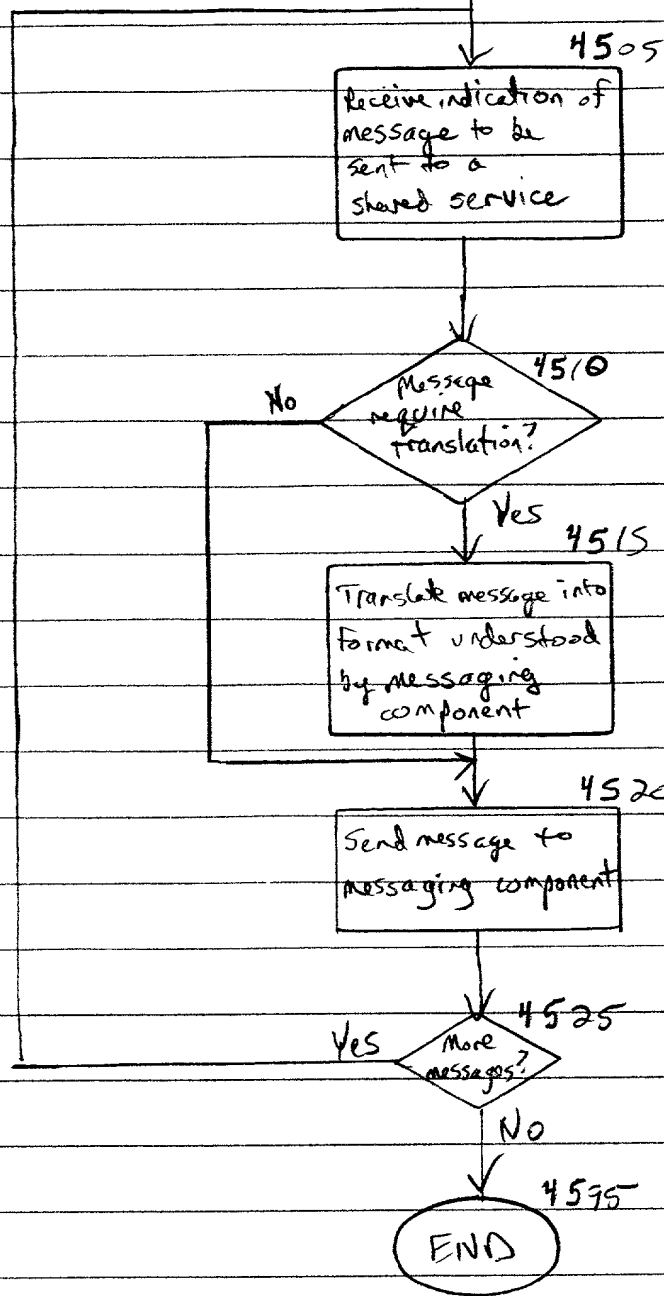 4505
Receive indication of
message to be
sent to a
shared service
4510
Message
require
translation?
No
Yes
4515
Translate message into
format understood
by messaging
component
4520
Send message to
messaging component
4525
More
messages?
Yes
No
4595
END